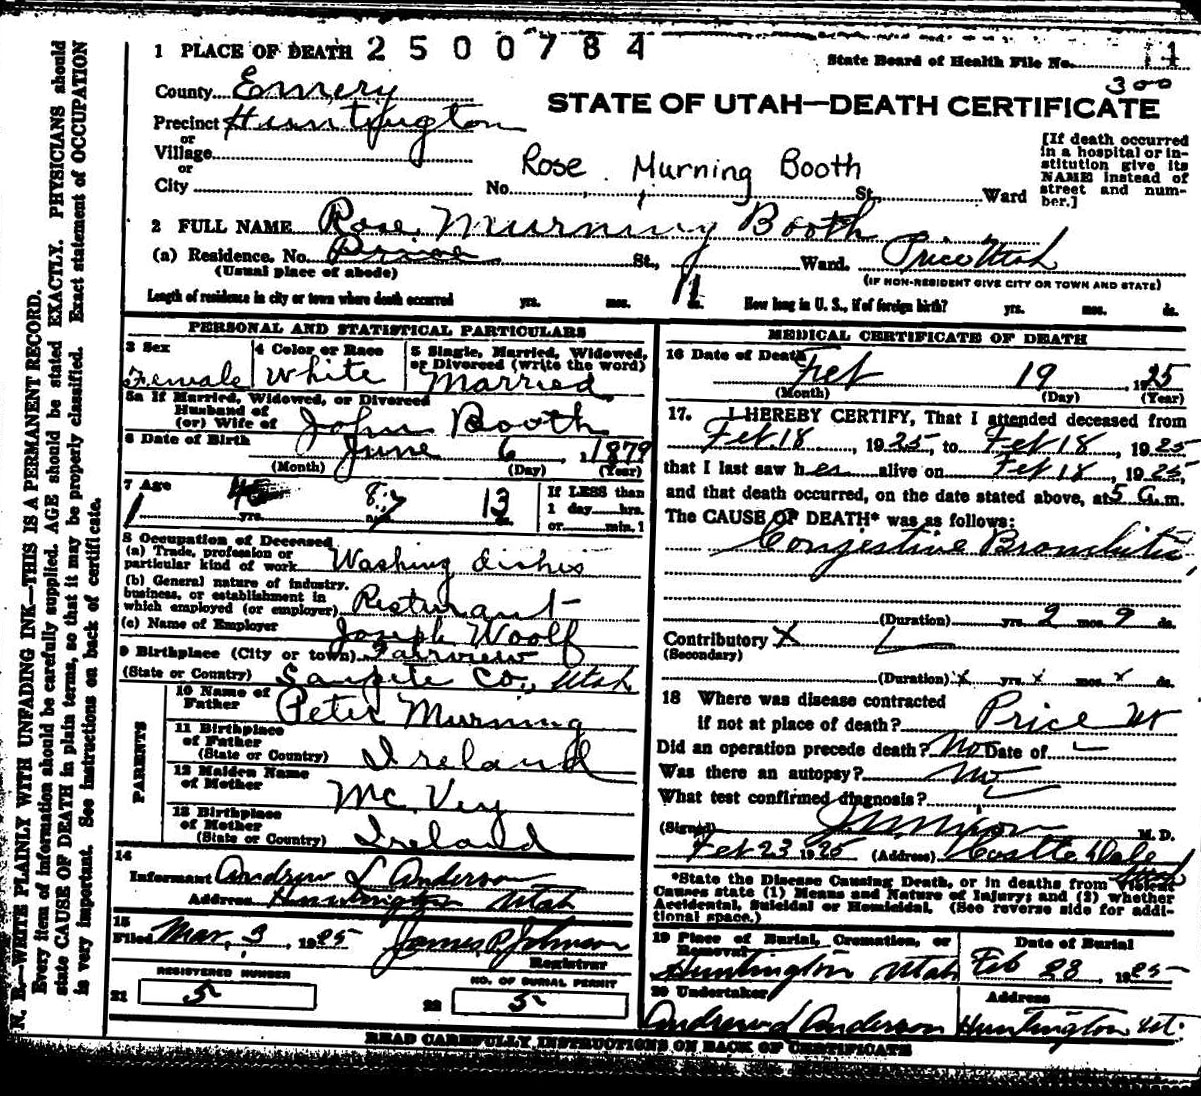 1 PLACE OF DEATH 2500784
State Board of Health File No. 11
300
County Emery
STATE OF UTAH—DEATH CERTIFICATE
Precinct Huntington
or
Village
or
City
No. Rose Murning Booth St. Ward
[If death occurred
in a hospital or in-
stitution give its
NAME instead of
street and num-
ber.]
2 FULL NAME Rose Murning Booth
(a) Residence. No. Price St., Ward. Price Utah
(Usual place of abode)
(IF NON-RESIDENT GIVE CITY OR TOWN AND STATE)
Length of residence in city or town where death occurred yrs. mos. 11 ds. How long in U. S., if of foreign birth? yrs. mos. ds.
PERSONAL AND STATISTICAL PARTICULARS
3 Sex
Female
4 Color or Race
White
5 Single, Married, Widowed,
or Divorced (write the word)
Married
5a If Married, Widowed, or Divorced
Husband of
(or) Wife of John Booth
6 Date of Birth June 6, 1879
(Month) (Day) (Year)
7 Age
yrs. 8 13
If LESS than
1 day hrs.
or min.
8 Occupation of Deceased
(a) Trade, profession or
particular kind of work Washing dishes
(b) General nature of industry,
business, or establishment in
which employed (or employer) Resturant
(c) Name of Employer Joseph Woolf
9 Birthplace (City or town) Fairview
(State or Country) Sanpete Co., Utah
PARENTS
10 Name of
Father Peter Murning
11 Birthplace
of Father
(State or Country) Ireland
12 Maiden Name
of Mother Mc Vey
13 Birthplace
of Mother
(State or Country) Ireland
14
Informant Andrew L Anderson
Address Huntington Utah
15
Filed Mar, 3, 1925 James P. Johnson
Registrar
REGISTERED NUMBER
21 5
NO. OF BURIAL PERMIT
22 5
MEDICAL CERTIFICATE OF DEATH
16 Date of Death
Feb 19, 1925
(Month) (Day) (Year)
17. I HEREBY CERTIFY, That I attended deceased from
Feb 18, 1925, to Feb 18, 1925
that I last saw her alive on Feb 18, 1925,
and that death occurred, on the date stated above, at 5 a.m.
The CAUSE OF DEATH* was as follows:
Congestive Bronchitis,
(Duration) yrs. 2 mos. 9 ds.
Contributory X
(Secondary)
(Duration) x yrs. x mos. x ds.
18 Where was disease contracted
if not at place of death? Price Ut
Did an operation precede death? No Date of
Was there an autopsy? no
What test confirmed diagnosis?
(Signed) M. D.
Feb 23 1925 (Address) Castle Dale
Utah
*State the Disease Causing Death, or in deaths from Violent
Causes state (1) Means and Nature of Injury; and (2) whether
Accidental, Suicidal or Homicidal. (See reverse side for addi-
tional space.)
19 Place of Burial, Cremation, or
Removal
Huntington Utah
Date of Burial
Feb 23, 1925
20 Undertaker
Andrew L Anderson
Address
Huntington Ut.
READ CAREFULLY INSTRUCTIONS ON BACK OF CERTIFICATE
N. B.—WRITE PLAINLY WITH UNFADING INK—THIS IS A PERMANENT RECORD.
Every item of information should be carefully supplied. AGE should be stated EXACTLY. PHYSICIANS should
state CAUSE OF DEATH in plain terms, so that it may be properly classified. Exact statement of OCCUPATION
is very important. See instructions on back of certificate.